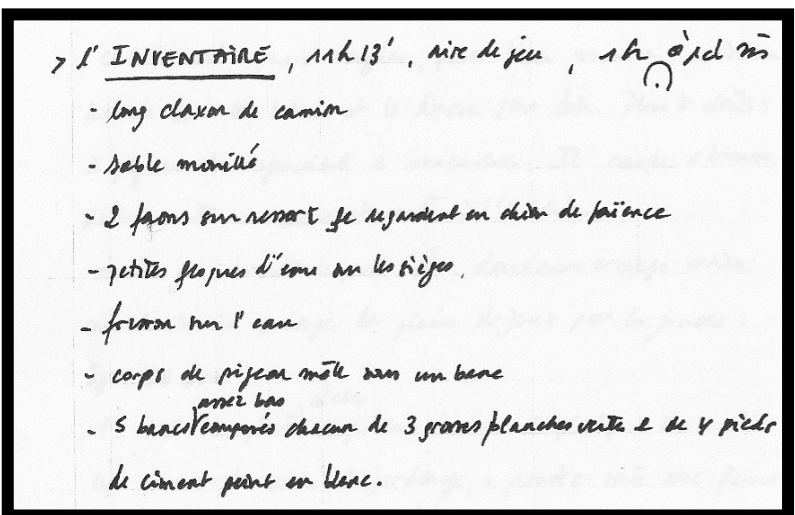 > l'INVENTAIRE, 11h13', aire de jeu, 1h
- long claxon de camion
- sable mouillé
- 2 faons sur ressort se regardent en chien de faïence
- petites flaques d'eau sur les sièges.
- frisson sur l'eau
- corps de pigeon mâle sous un banc
assez bas
- 5 bancs composés chacun de 3 grosses planches vertes et de 4 pieds
de ciment peint en blanc.